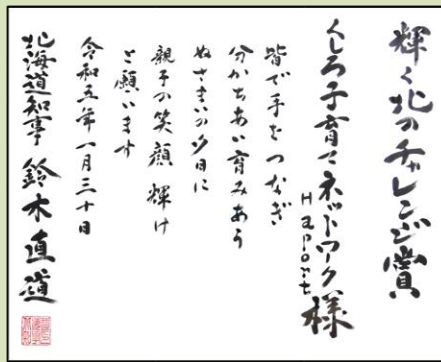 輝く北のチャレンジ賞
くしろ子育てネットワーク
Happort
様
皆で手をつなぎ
分かちあい育みあう
ぬさまいの夕日に
親子の笑顔 輝け
と願います
令和五年一月三十日
北海道知事 鈴木直道